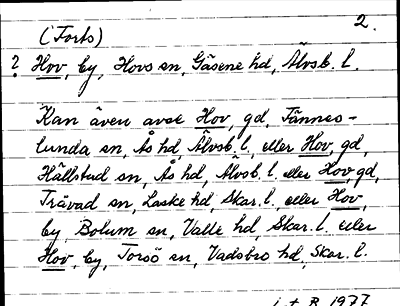 2.
(Forts)
? Hov, by, Hovs sn, Gäsene hd, Älvsb. l.
Kan även avse Hov, gd, Tännes-
lunda sn, Ås hd, Älvsb. l, eller Hov, gd,
Hällstad sn, Ås hd, Älvsb. l. eller Hov gd,
Trävad sn, Laske hd, Skar. l., eller Hov,
by Bolum sn, Valle hd, Skar. l. eller
Hov, by, Torsö sn, Vadsbro hd, Skar. l.
1977